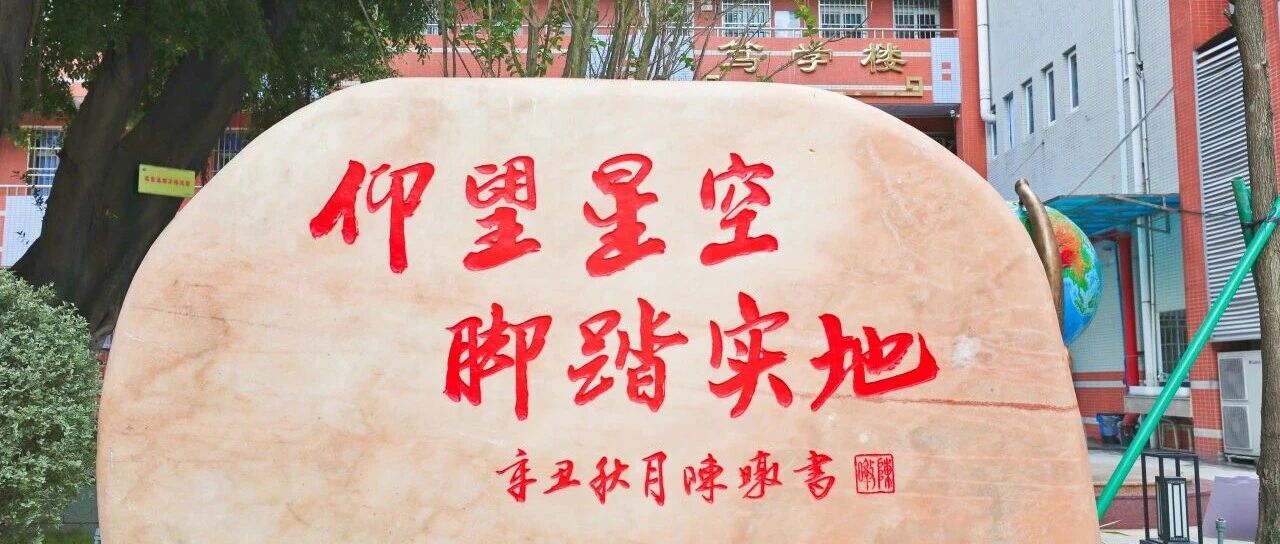 笃学楼
仰望星空
脚踏实地
辛丑秋月陳暾書